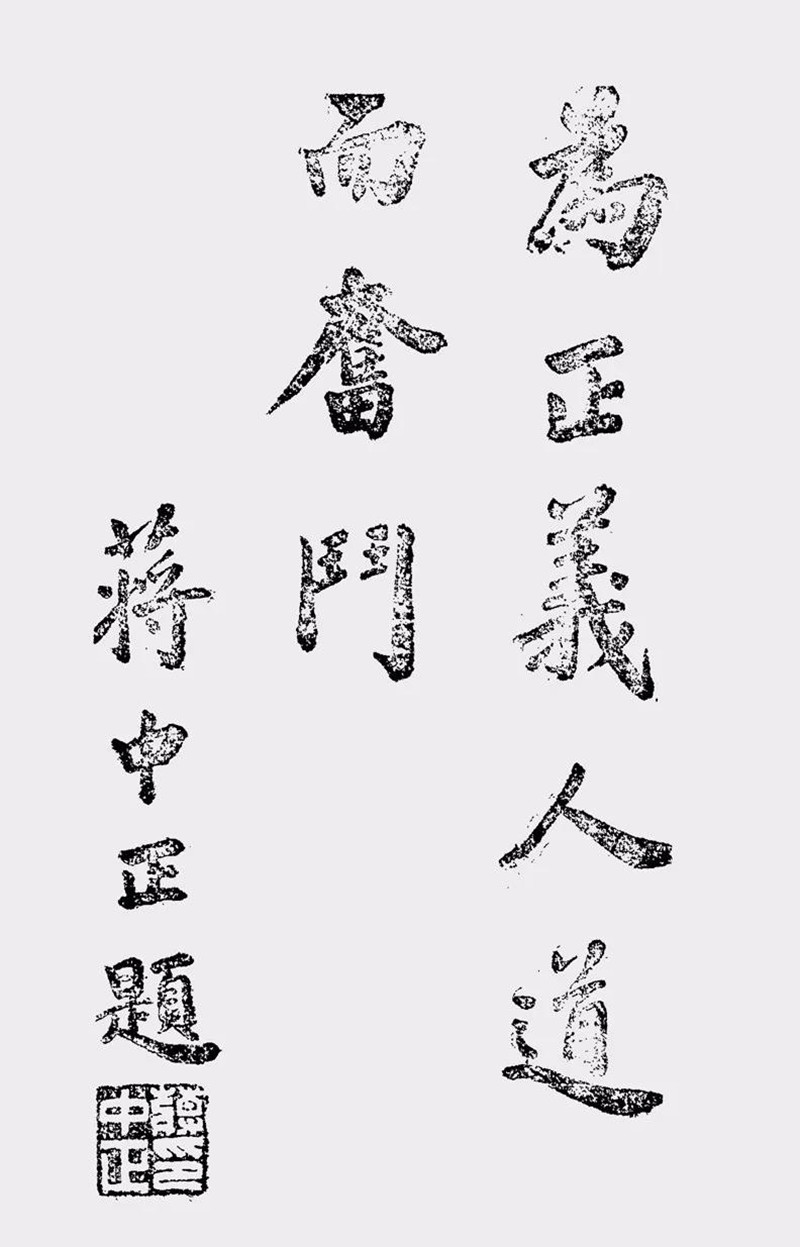 為正義人道
而奮鬥
蔣中正題
蔣中正印